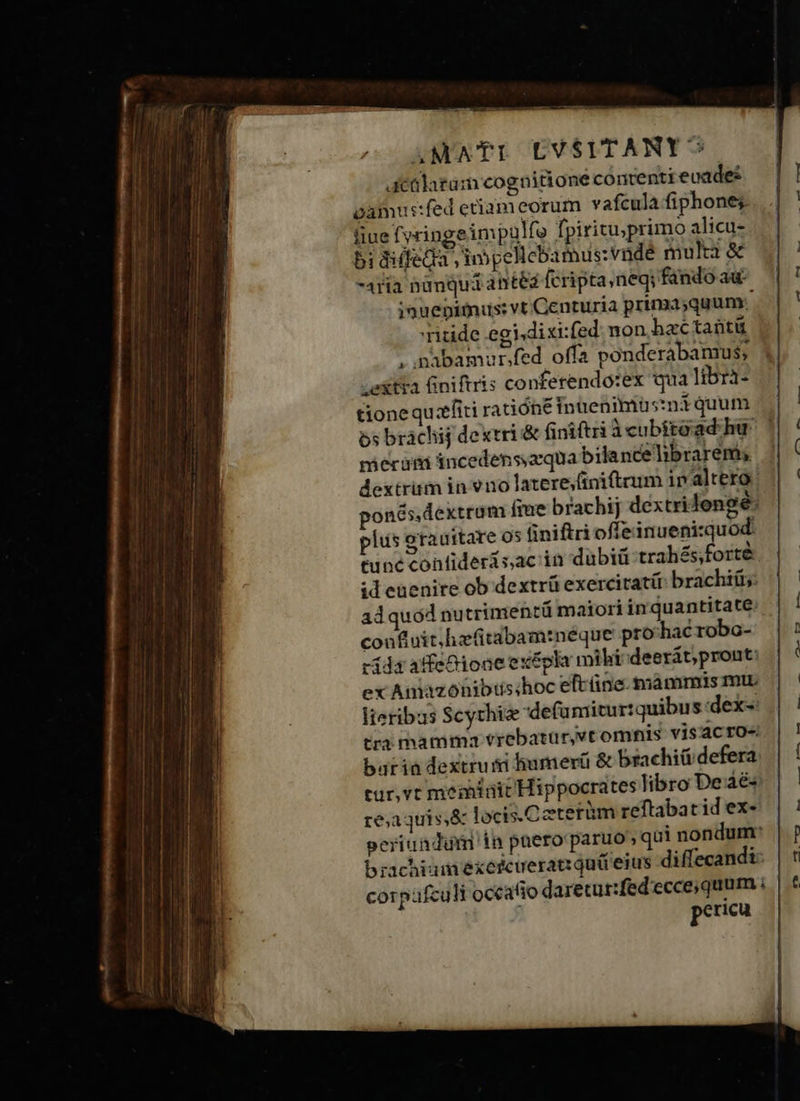 AMATI LVSITANI
aculatam cognitione contenti euade-
bamus:sed etiam eorum vascula siphones
siue syringe impulso spiritu,primo alicu-
bi dissecta, impellebamus:vnde multa &
varia nunquã anteà scripta,neq; fando au-
inuenimus: vt Centuria prima,quum
egi,dixi:sed non hæc tantũ
nabamur,sed ossa ponderabamus,
dextra sinistris conferendo:ex qua libra-
tione quæsiti rationẽ inuenimus:nã quum
os brachij dextri & sinistri à cubito ad hu
merum incedens,æqua bilance librarem,
dextrum in vno latere,sinistrum in altero
ponẽs,dextrum siue brachij dextri longè
plus grauitare os sinistri offe inueni:quod
tunc considerãs,ac in dubiũ trahẽs,fortè
id euenire ob dextrũ exercitatũ brachiũ,
ad quod nutrimentũ maiori in quantitate
confluit,hæsitabam:neque pro hac robo-
rãda affectione exẽpla mihi deerãt,prout
ex Amazonibus,hoc est sine mammis mu
lieribus Scythiæ desumitur:quibus dex-
tra mamma vrebatur,vt omnis vis ac ro-
bur in dextrum humerũ & brachiũ defera
tur,vt meminit Hippocrates libro De aë-
re,aquis,& locis.Cæterùm restabat id ex-
periundum in puero paruo, qui nondum
brachium exercuerat:quũ eius dissecandi
corpusculi occasio daretur:sed ecce,quum
pericu